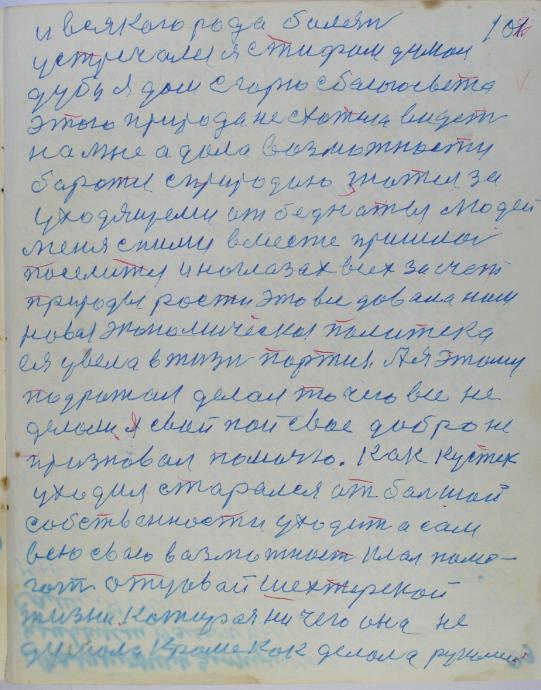 и всякого рода болеят 101
устречался я стифом думал
дуба я дам сгорю с белого света
этого природа не схотела видеть
на мне а дала возможности
баротся с природаю знатся за
уходящеми от беднатыя людей
меня сними вместе пришлос
поселится и наглазах всех за счет
природы рости это выдовала нам
новая экономическая политека
ея увела в жизн партия. А я этому
подражал делал то чего все не
делали. я свой пай свае добро не
признавал помачю. Как Кустек
уходил старался от балшой
собственности уходит а сам
всю сваю возможност клал помо-
гат отцовай шехтерской
жизни. Которая ничего она не
думала кроме как делала руками